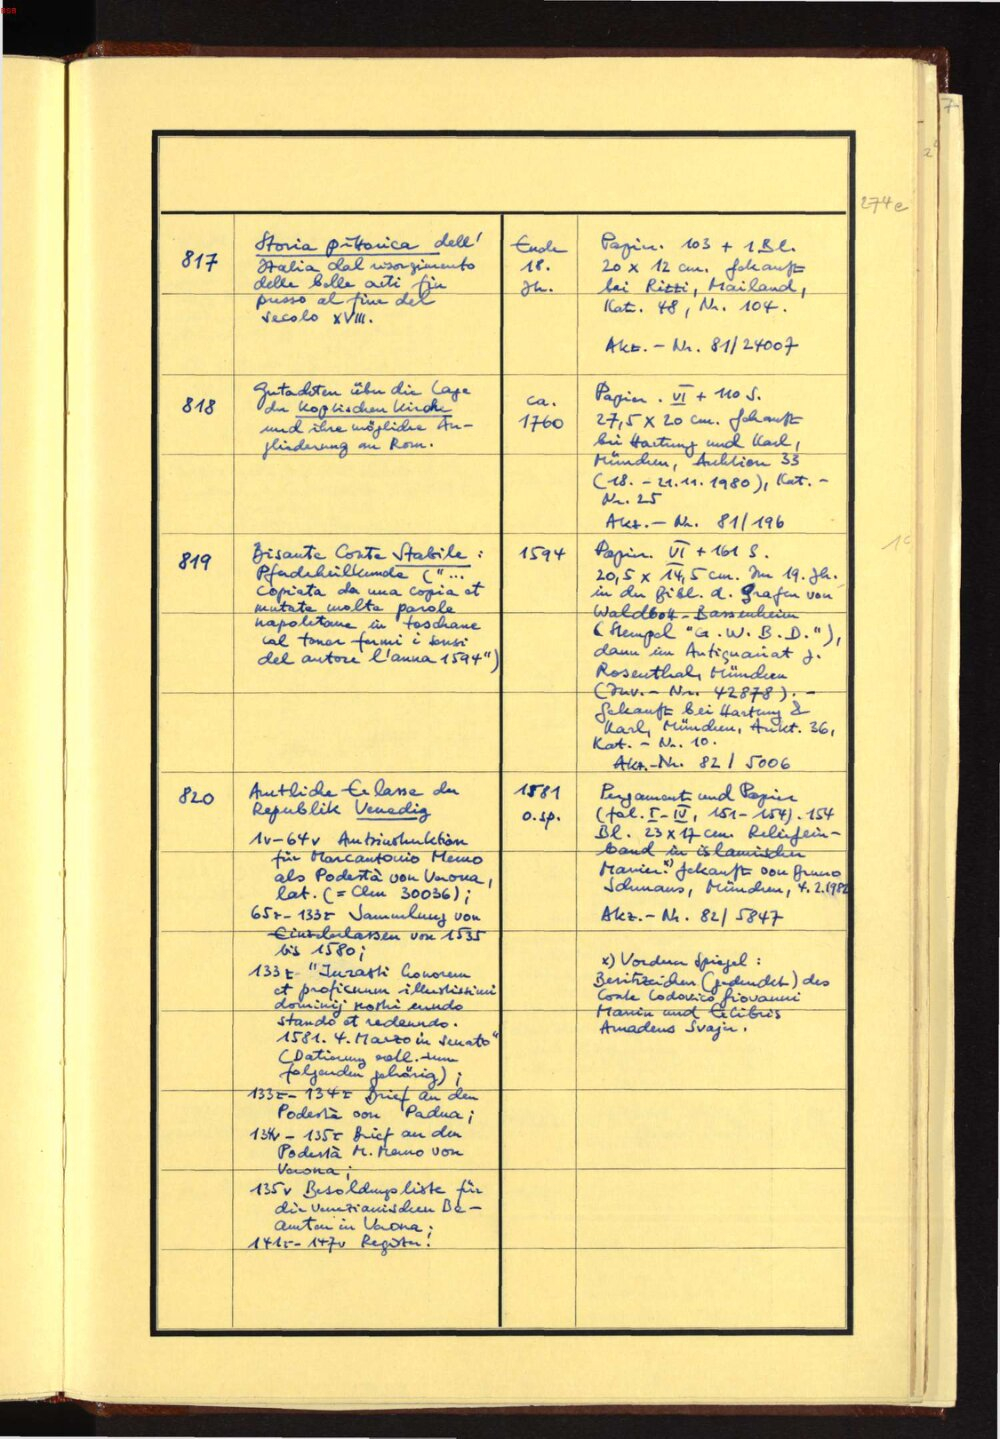 274e
817
Storia pittorica dell'
Italia dal risorgimento
delle belle arti fin
presso al fine del
secolo XVIII.
Ende
18.
Jh.
Papier. 103 + 1 Bl.
20 x 12 cm. Gekauft
bei Rizzi, Mailand,
Kat. 48, Nr. 104.
Akz.-Nr. 81/24007
818
Gutachten über die Lage
der Koptischen Kirche
und ihre mögliche An-
gliederung an Rom.
ca.
1760
Papier. VI + 110 S.
27,5 x 20 cm. Gekauft
bei Hartung und Karl,
München, Auktion 33
(18.-21.11.1980), Kat.-
Nr. 25
Akz.-Nr. 81/196
819
Bisante Conte Stabile:
Pferdeheilkunde ("...
copiata da una copia et
mutate molte parole
napoletane in toschane
col tener fermi i sensi
del autore l'anna 1594")
1594
Papier. VI + 161 S.
20,5 x 14,5 cm. Im 19. Jh.
in der Bibl. d. Grafen von
Waldbott-Bassenheim
(Stempel "G.W.B.D."),
dann im Antiquariat J.
Rosenthal, München
(Inv.-Nr. 42878).-
Gekauft bei Hartung &
Karl, München, Aukt. 36,
Kat.-Nr. 10.
Akz.-Nr. 82/5006
820
Amtliche Erlasse der
Republik Venedig
1v-64v Amtsinstruktion
für Marcantonio Memo
als Podestà von Verona,
lat. (= Clm 30036);
65r-133r Sammlung von
Einzelerlassen von 1535
bis 1580;
133r "Iurasti honorem
et proficuum illustrissimi
dominij nostri eundo
stando et redeundo.
1581. 4. Marzo in Senato"
(Datierung zum
folgenden gehörig);
133r-134r Brief an den
Podestà von Padua;
134v-135r Brief an den
Podestà M. Memo von
Verona;
135v Besoldungsliste für
die venezianischen Be-
amten in Verona;
141r-147v Register.
1581
o.sp.
Pergament und Papier
(fol. I-IV, 151-154). 154
Bl. 23 x 17 cm. Reliefein-
band in islamischer
Manier.x) Gekauft von Bruno
Schmaus, München, 4.2.1982
Akz.-Nr. 82/5847
x) Vorderer Spiegel:
Besitzzeichen (gedruckt) des
Conte Lodovico Giovanni
Manin und Exlibris
Amadeus Svajer.